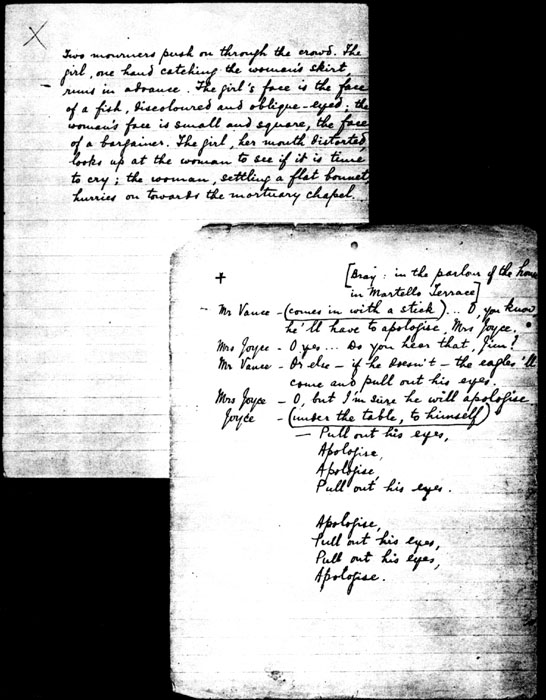 Two mourners push on through the crowd. The
girl, one hand catching the woman's skirt,
runs in advance. The girl's face is the face
of a fish, discoloured and oblique-eyed; the
woman's face is small and square, the face
of a bargainer. The girl, her mouth distorted,
looks up at the woman to see if it is time
to cry; the woman, settling a flat bonnet,
hurries on towards the mortuary chapel.
[Bray: in the parlour of the house
in Martello Terrace]
Mr Vance - (comes in with a stick)... O, you know,
he'll have to apologise, Mrs Joyce.
Mrs Joyce - O yes... Do you hear that, Jim?
Mr Vance - Or else - if he doesn't - the eagles'll
come and pull out his eyes.
Mrs Joyce - O, but I'm sure he will apologise.
Joyce - (under the table, to himself)
- Pull out his eyes,
Apologise,
Apologise,
Pull out his eyes.
Apologise,
Pull out his eyes,
Pull out his eyes,
Apologise.